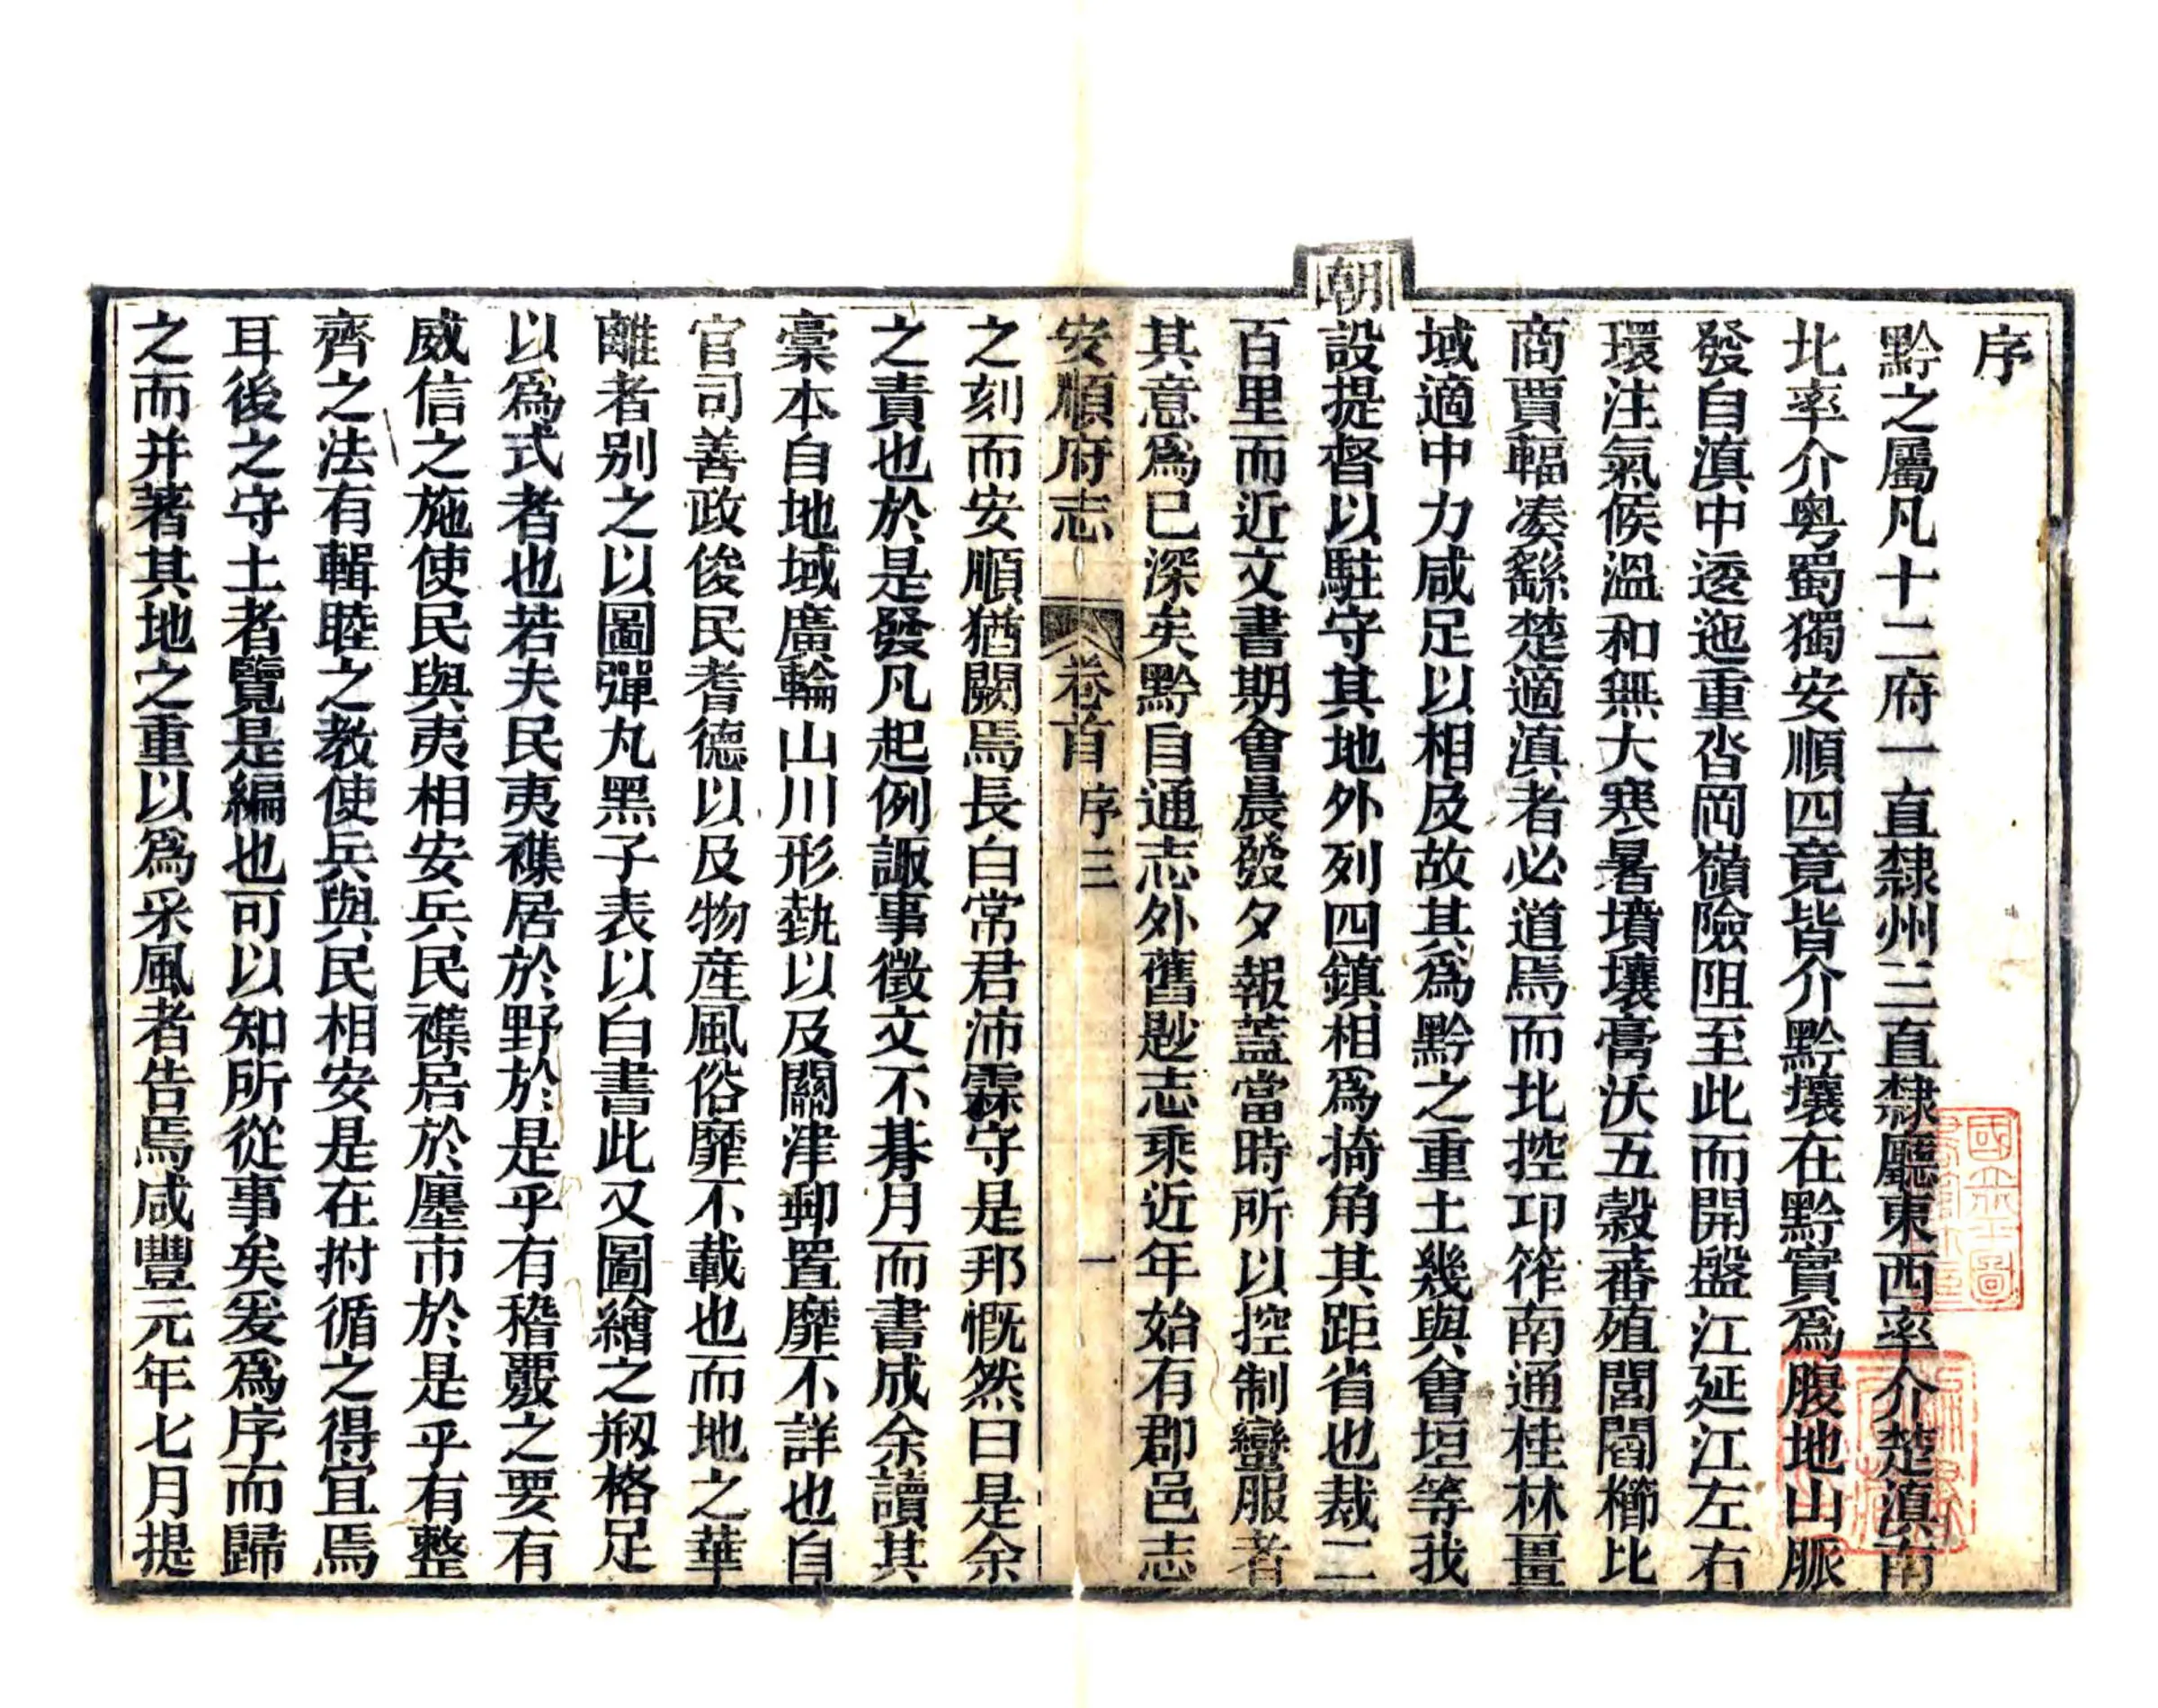 序
黔之屬凡十二府一直隸州三直隸廳東西率介楚滇南
北率介粵蜀獨安順四竟皆介黔壤在黔實爲腹地山脈
發自滇中逶迤重沓岡嶺險阻至此而開盤江延江左右
環注氣候溫和無大寒暑墳壤膏沃五穀蕃殖閭閻櫛比
商賈輻湊繇楚適滇者必道焉而北控邛筰南通桂林畺
域適中力咸足以相及故其爲黔之重土幾與會垣等我
朝
設提督以駐守其地外列四鎮相爲掎角其距省也裁二
百里而近文書期會晨發夕報蓋當時所以控制蠻服者
其意爲已深矣黔自通志外舊尟志乘近年始有郡邑志
安順府志 卷首 序三 一
之刻而安順猶闕焉長白常君沛霖守是邦慨然曰是余
之責也於是發凡起例諏事徵文不朞月而書成余讀其
稾本自地域廣輪山川形埶以及關津郵置靡不詳也自
官司善政俊民耆德以及物産風俗靡不載也而地之華
離者别之以圖彈丸黑子表以白書此又圖繪之剏格足
以爲式者也若夫民夷襍居於野於是乎有稽覈之要有
威信之施使民與夷相安兵民襍居於廛市於是乎有整
齊之法有輯睦之教使兵與民相安是在拊循之得宜焉
耳後之守土者覽是編也可以知所從事矣爰爲序而歸
之而并著其地之重以爲采風者告焉咸豐元年七月提